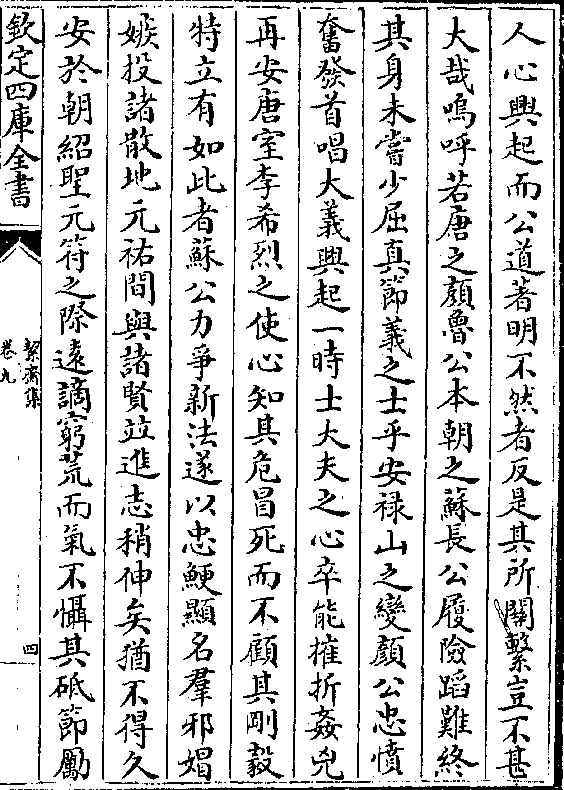 人心興起而公道著明不然者反是其所關繫豈不甚
大哉嗚呼若唐之顔魯公本朝之蘇長公履險蹈難終
其身未嘗少屈真節義之士乎安禄山之變顔公忠憤
奮發首唱大義興起一時士大夫之心卒能摧折姦兇
再安唐室李希烈之使心知其危冒死而不顧其剛毅
特立有如此者蘇公力爭新法遂以忠鯁顯名羣邪娼
嫉投諸散地元祐間與諸賢竝進志稍伸矣猶不得久
安於朝紹聖元符之際遠謫窮荒而氣不懾其砥節勵
欽定四庫全書
絜齋集
卷九
四